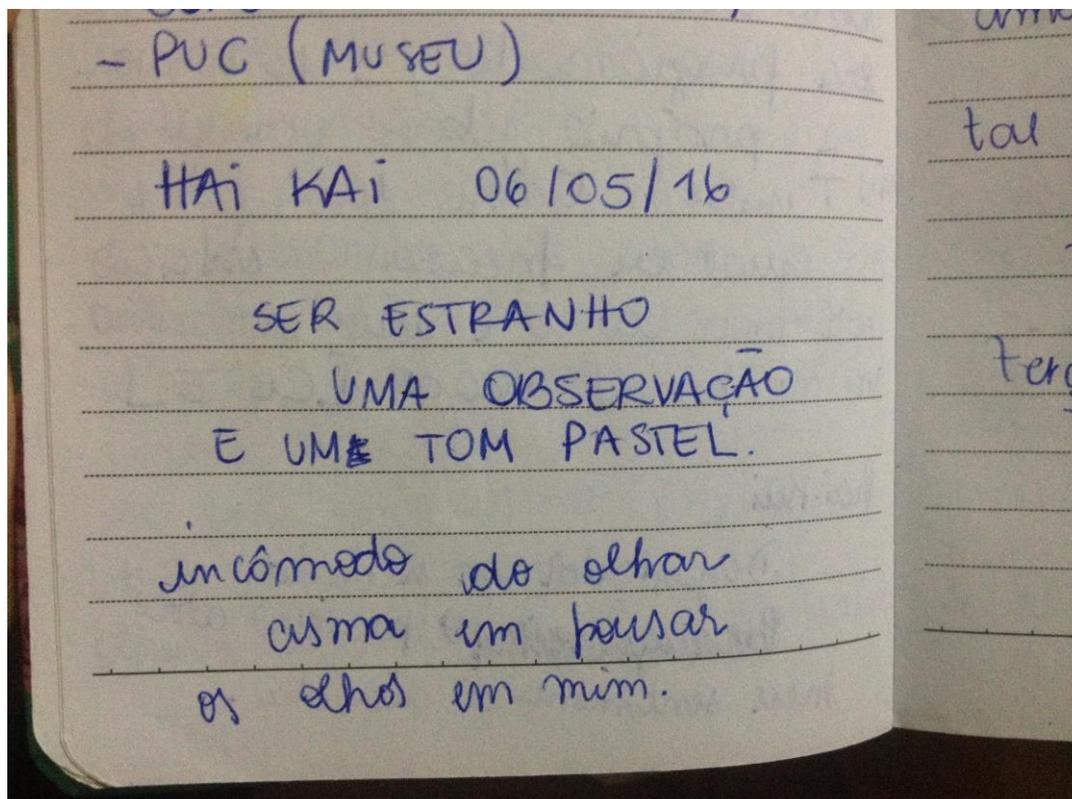 - PUC (MUSEU)
HAi KAi 06/05/16
SER ESTRANHO
UMA OBSERVAÇÃO
E UM TOM PASTEL.
incômodo do olhar
cisma em pousar
os olhos em mim.
tal